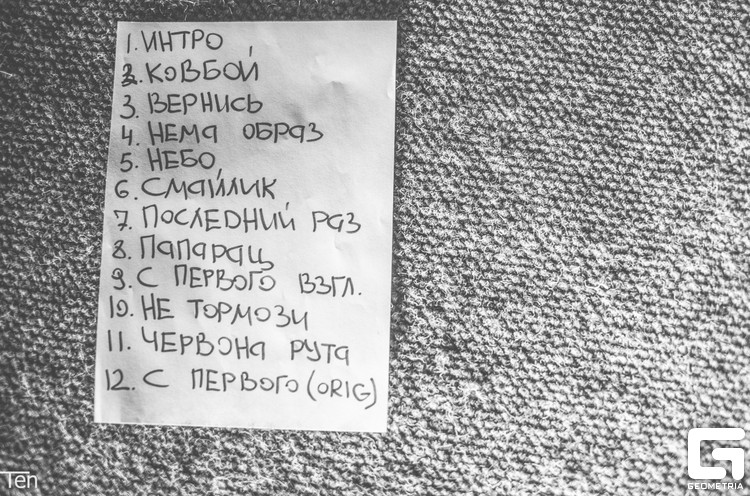 1. ИНТРО
2. КОВБОЙ
3. ВЕРНИСЬ
4. НЕМА ОБРАЗ
5. НЕБО
6. СМАЙЛИК
7. ПОСЛЕДНИЙ РАЗ
8. ПАПАРАЦ
9. С ПЕРВОГО ВЗГЛ.
10. НЕ ТОРМОЗИ
11. ЧЕРВОНА РУТА
12. С ПЕРВОГО (ORIG)
Ten
GEOMETRIA